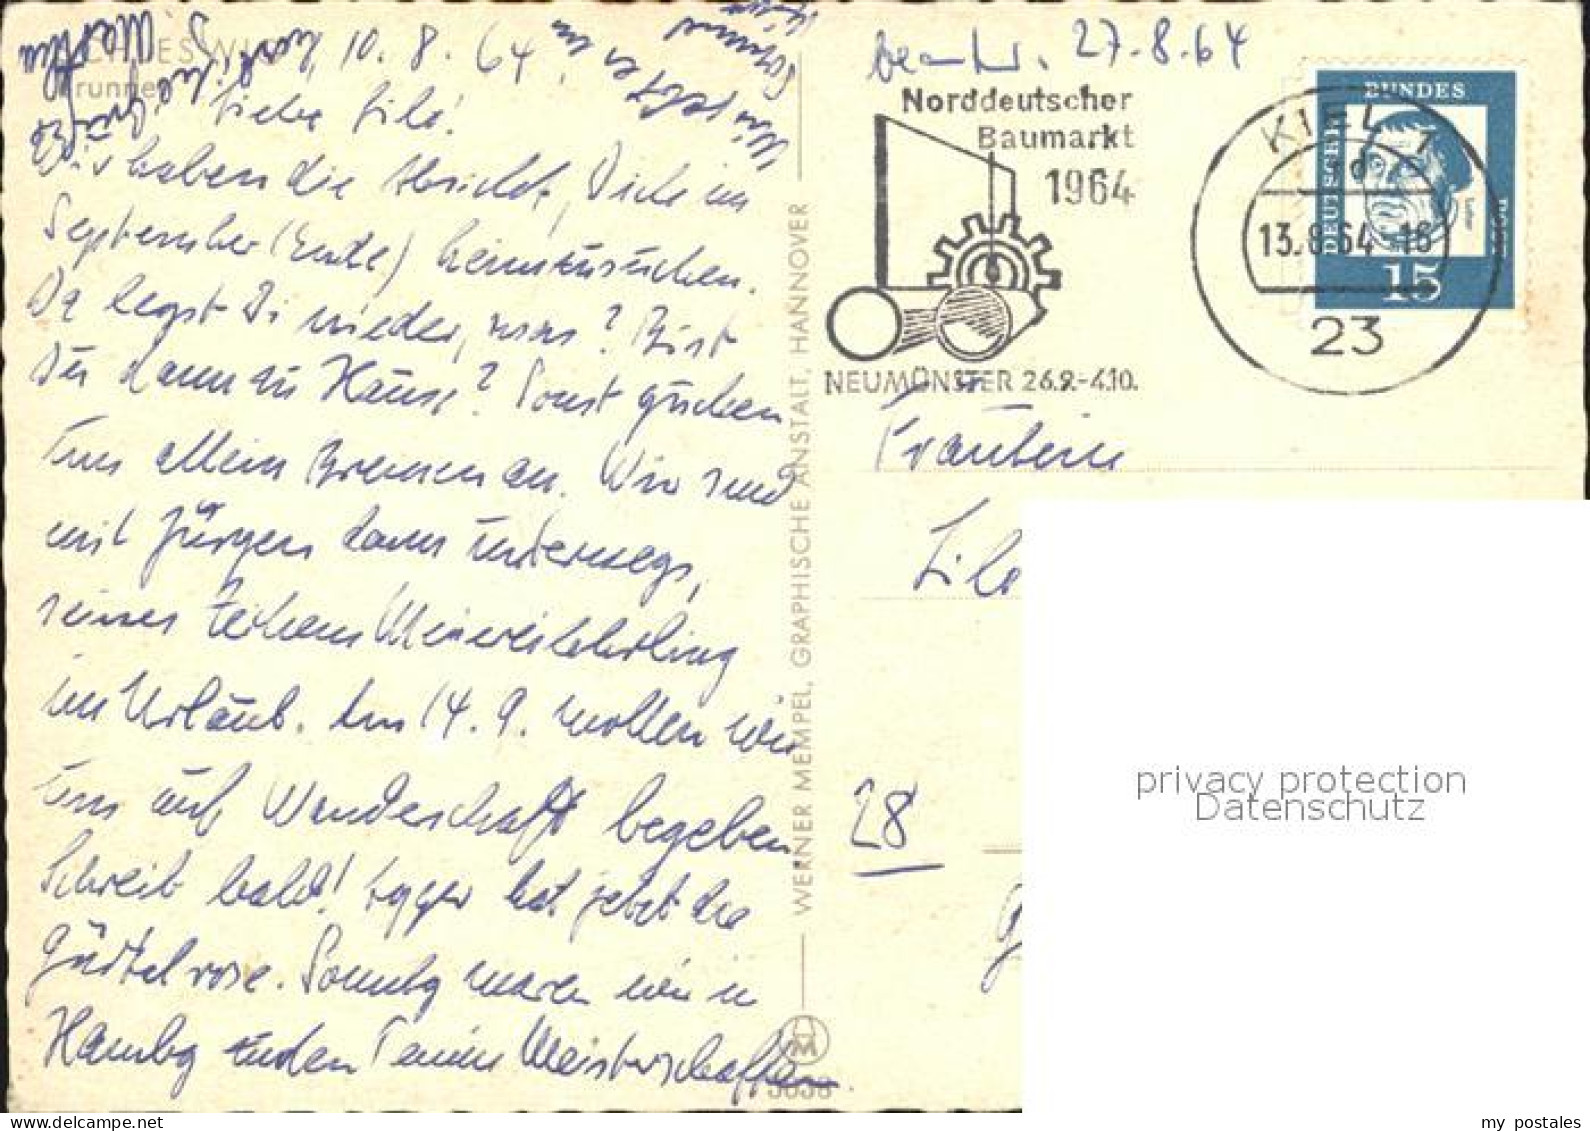 SCHLESWIG
Brunnen
10. 8. 64
Liebe Lilo!
Wir haben die Absicht, Dich im
September (Ende) heimzusuchen.
Da legst Di nieder, was? Bist
Du dann zu Hause? Sonst gucken
uns allein Bremen an. Wir sind
mit Jürgen dann unterwegs,
seines Zeichens
im Urlaub. Am 14. 9. wollen wir
uns auf Wanderschaft begeben.
Schreib bald! hat jetzt die
Gürtelrose. Sonntag waren wir in
Hambg Meisterschaften.
Wie geht es
Herzliche Grüße
WERNER MEMPEL, GRAPHISCHE ANSTALT, HANNOVER
M
5638
beantw. 27.8.64
Norddeutscher
Baumarkt
1964
NEUMÜNSTER 26.9.-4.10.
KIEL 1
13.8.64-16
23
DEUTSCHE
BUNDES
POST
Luther
15
Fräulein
28
privacy protection
Datenschutz
my postales